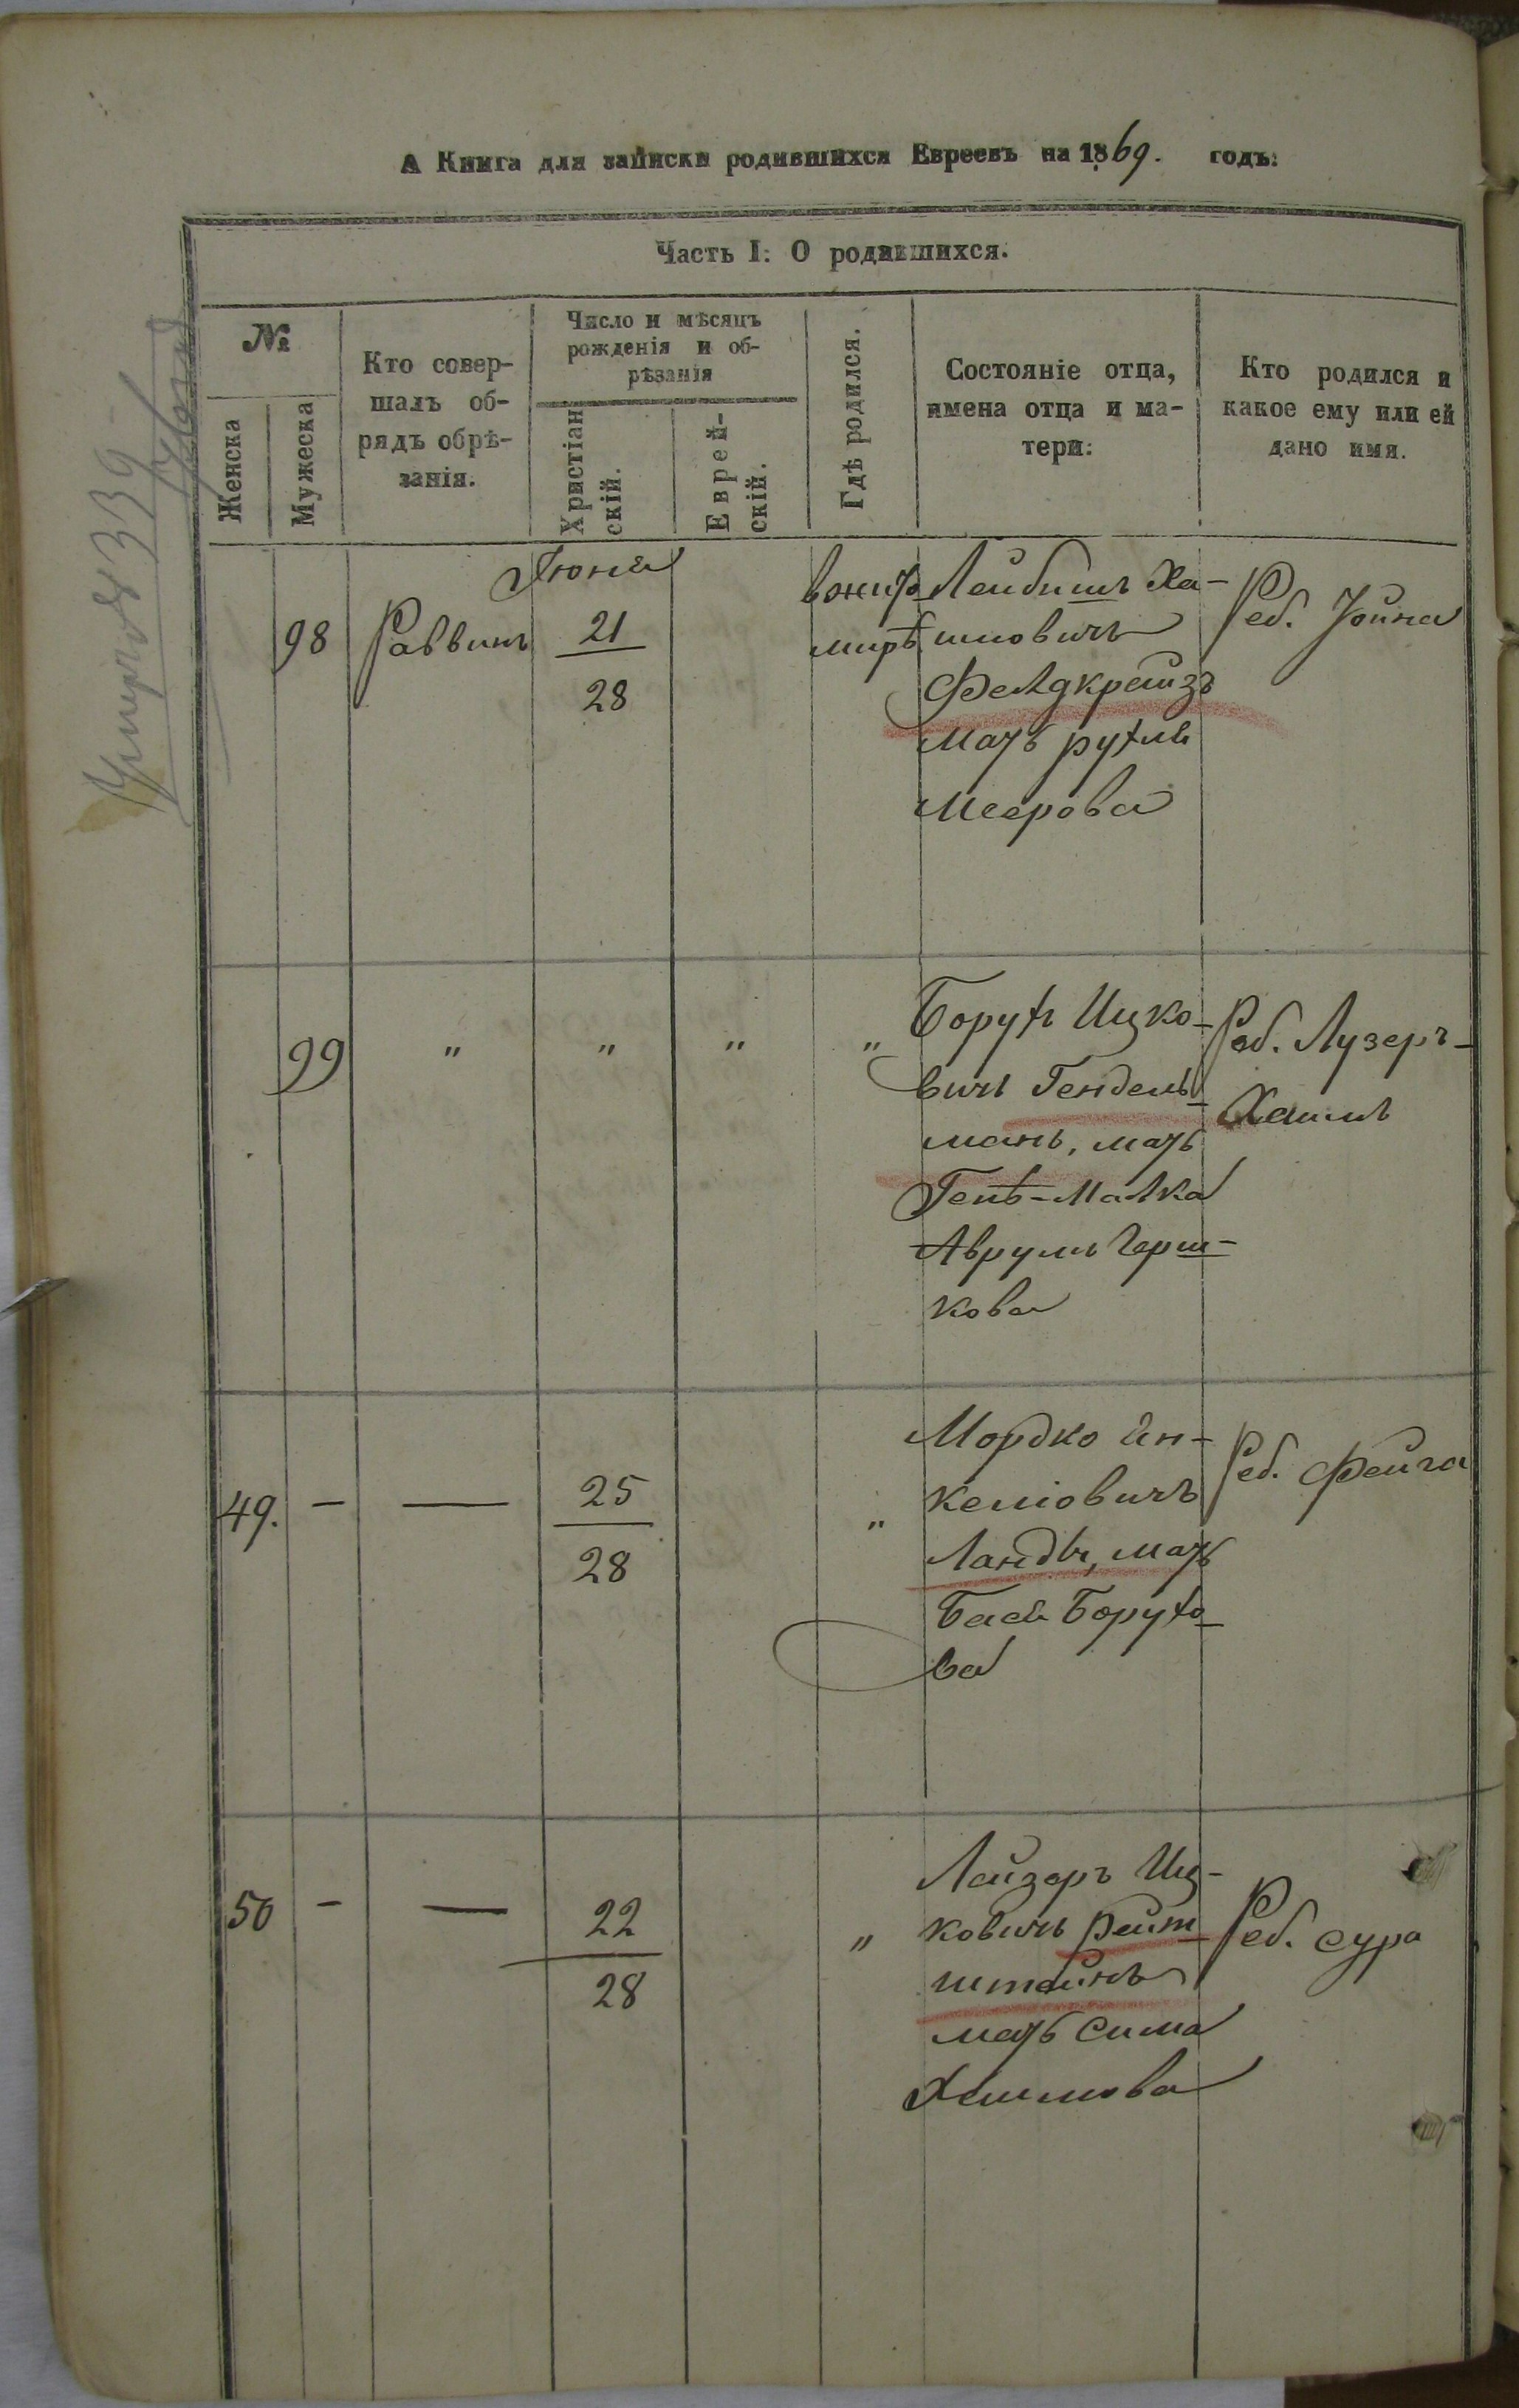 А Книга для записки родившихся Евреевъ на 1869. годъ:
Часть I: О родившихся.
№
Женска
Мужеска
Кто совер-
шалъ об-
рядъ обрѣ-
занія.
Число и мѣсяцъ
рожденія и об-
рѣзанія
Христіан
скій.
Еврей-
скій.
Гдѣ родился.
Состояніе отца,
имена отца и ма-
тери:
Кто родился и
какое ему или ей
дано имя.
98
Раввинъ
Іюня
21
28
вжито
мирѣ
Лейбишъ Ха-
имовичъ
Фелдкрейзъ
мать рухля
Меерова
Реб. Іойна
99
"
"
"
"
Борухъ Ицко-
вичъ Гендель-
манъ, мать
Гепѣ-Малка
Аврумъ Герш-
кова
Реб. Лузеръ-
Хаимъ
49.
—
—
25
28
"
Мордко Ян-
келіовичъ
Ландъ, мать
Бася Борухо-
ва
Реб. Фейга
50
-
—
22
28
"
Лейзеръ Иц-
ковичъ рейт
штейнъ
мать Сима
Хаимова
Реб. сура